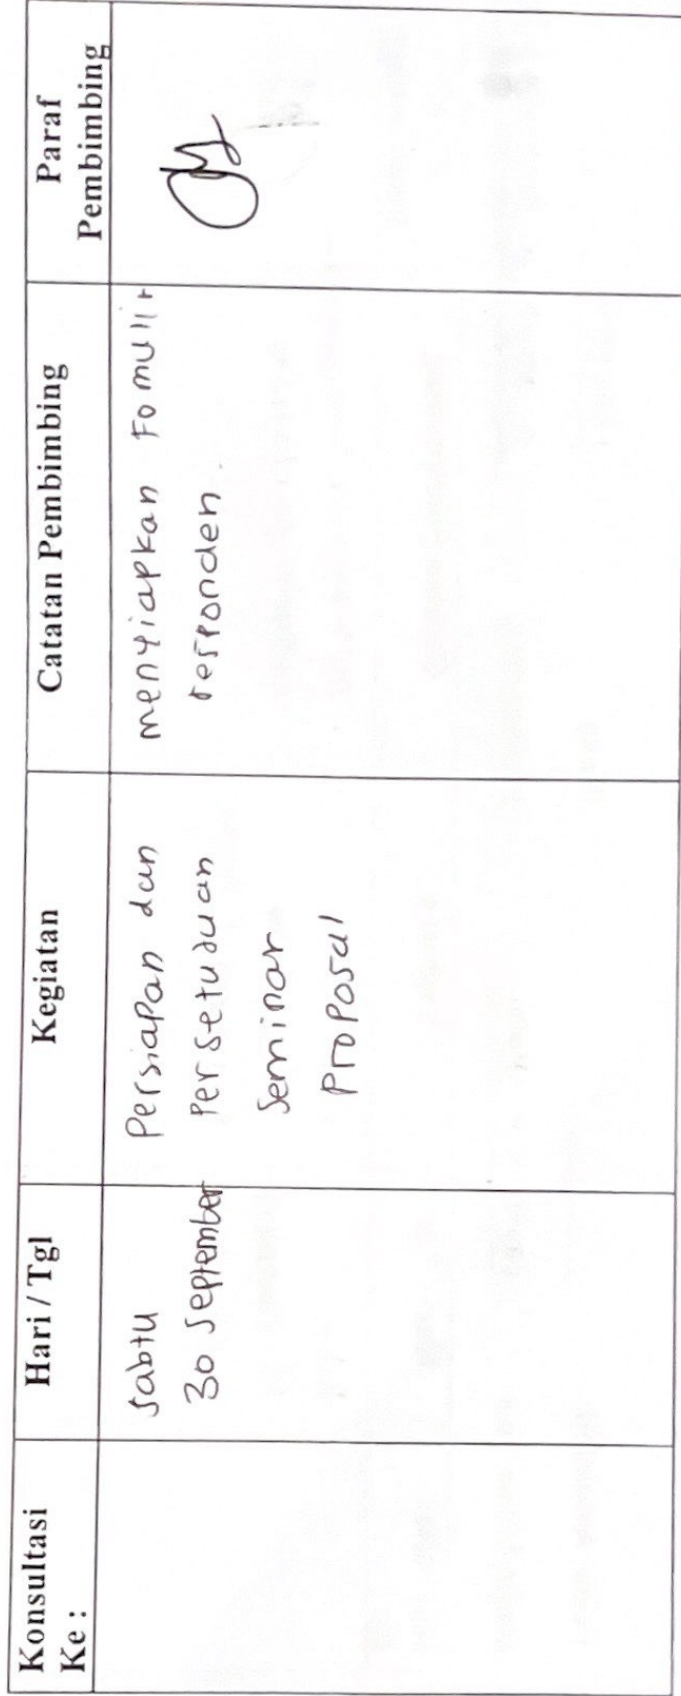 Konsultasi
Ke :
Hari / Tgl
Kegiatan
Catatan Pembimbing
Paraf
Pembimbing
Sabtu
30 September
Persiapan dan
Persetujuan
Seminar
Proposal
menyiapkan Fomulir
responden.